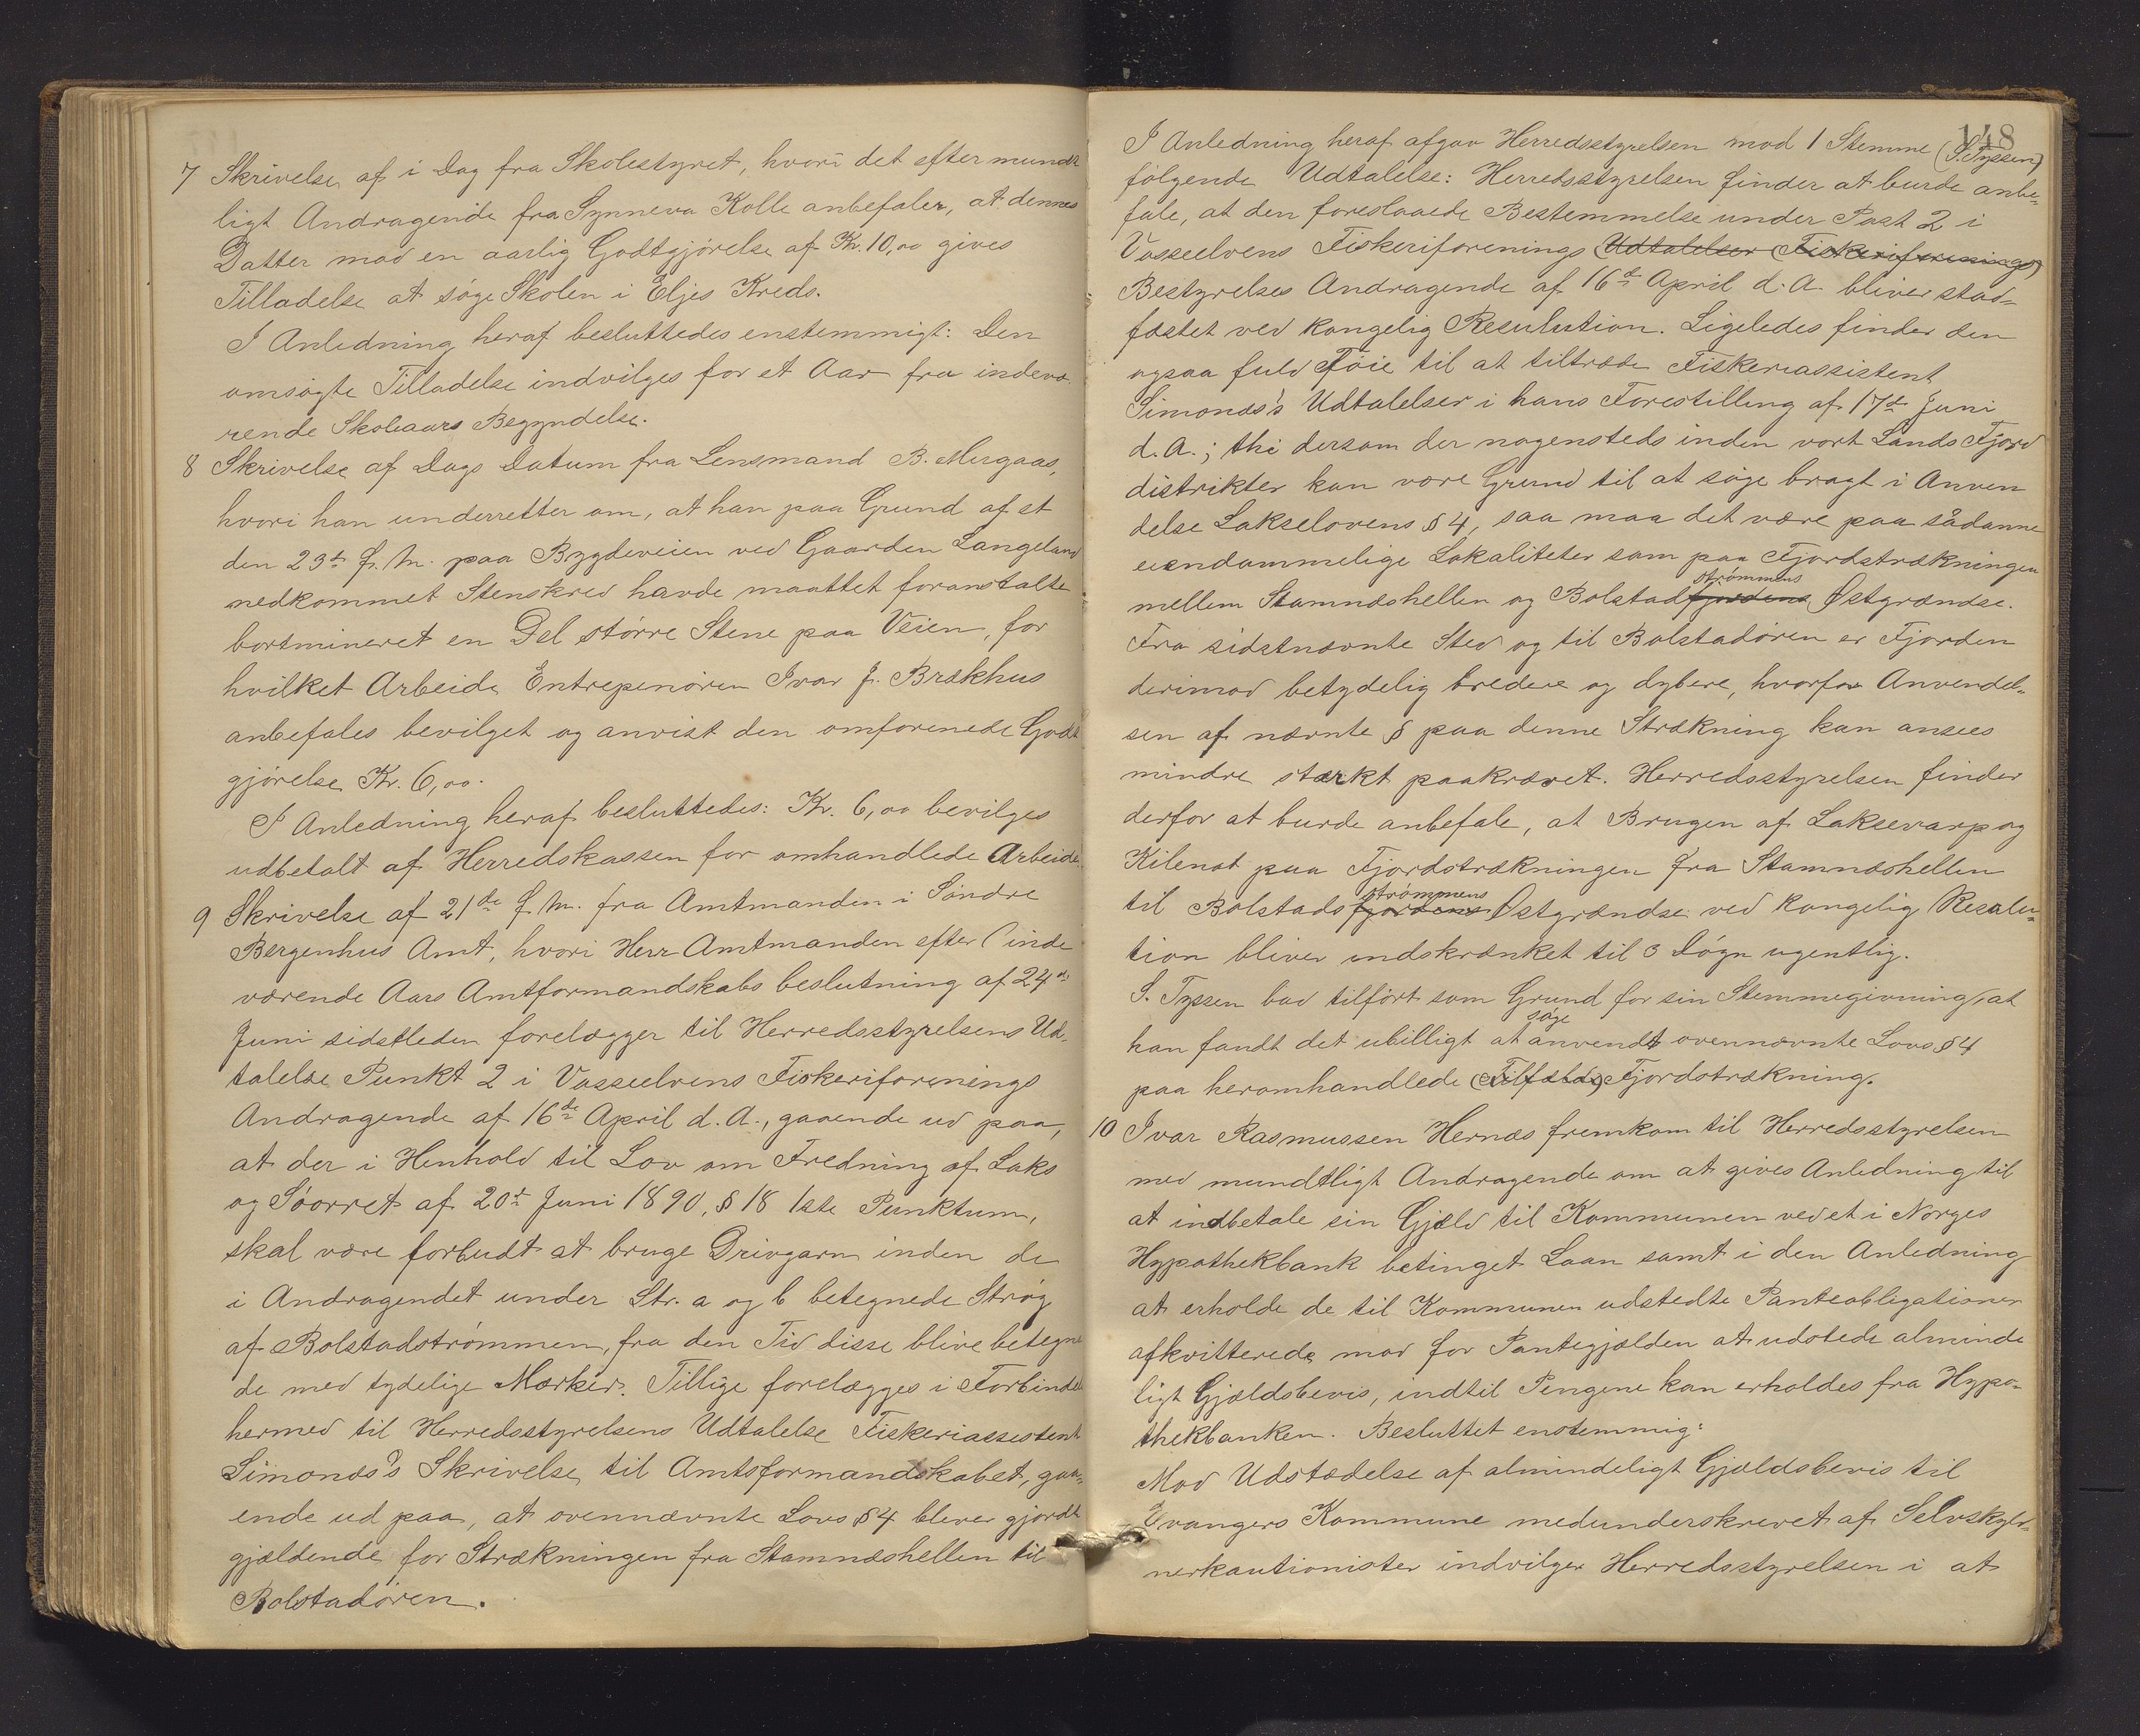 7 Skrivelse af i Dag fra Skolestyret, hvori det efter mundt
ligt Andragende fra Synneva Kolle anbefaler, at dennes
Datter mod en aarlig Godtgjörelse af Kr. 10,00 gives
Tilladelse at söge Skolen i Eljes Kreds.
I Anledning heraf besluttedes enstemmigt: Den
omsögte Tilladelse indvilges for et Aar fra indevæ
rende Skoleaars Begyndelse.
8 Skrivelse af Dags Datum fra Lensmand B. Mugaas,
hvori han underretter om, at han paa Grund af et
den 23de f. M. paa Bygdeveien ved Gaarden Langeland
nedkommet Stenskred havde maattet foranstalte
bortmineret en Del större Stene paa Veien, for
hvilket Arbeide Entrepenören Ivar J. Brækhus
anbefales bevilget og anvist den omforenede Godt
gjörelse Kr. 6,00.
I Anledning heraf besluttedes: Kr. 6,00 bevilges
udbetalt af Herredskassen for omhandlede Arbeide.
9 Skrivelse af 21de f. M. fra Amtmanden i Söndre
Bergenhus Amt, hvori Herr Amtmanden efter inde
værende Aars Amtformandskabs beslutning af 24de
Juni sidstleden forelægger til Herredsstyrelsens Ud-
talelse Punkt 2 i Vosseelvens Fiskeriforenings
Andragende af 16de April d. A., gaaende ud paa,
at der i Henhold til Lov om Fredning af Laks
og Söorret af 20de Juni 1890, § 18 1ste Punktum,
skal være forbudt at bruge Drivgarn inden de
i Andragendet under Litr. a og b betegnede Strög
af Bolstadströmmen, fra den Tid disse blive betegne
de med tydelige Mærker. Tillige forelægges i Forbindel
hermed til Herredsstyrelsens Udtalelse Fiskeriassistent
Simonæs's Skrivelse til Amtsformandskabet, gaa-
ende ud paa, at ovennævnte Lovs § 4 bliver gjordt
gjældende for Strækningen fra Stamnæshellen til
Bolstadören.
148
I Anledning heraf afgav Herredsstyrelsen mod 1 Stemme (S. Tyssen)
fölgende Udtalelse: Herredsstyrelsen finder at burde anbe-
fale, at den foreslaaede Bestemmelse under Post 2 i
Vosseelvens Fiskeriforenings (Udtalelser (Fiskeriforenings)
Bestyrelses Andragende af 16de April d. A. bliver stad-
fæstet ved kongelig Resulution. Ligeledes finder den
ogsaa fuld Föie til at tiltræde Fiskeriassistent
Simonæs's Udtalelser i hans Forestilling af 17de Juni
d. A.; thi dersom der nogensteds inden vort Lands Fjord
distrikter kan være Grund til at söge bragt i Anven
delse Lakselovens § 4, saa maa det være paa sådanne
eiendommelige Lokaliteter som paa Fjordstrækningen
strömmens
mellem Stamnæshellen og Bolstadfjordens Östgrændse.
Fra sidstnævnte Sted og til Bolstadören er Fjorden
derimod betydelig bredere og dybere, hvorfor Anvendel-
sen af nævnte § paa denne Strækning kan ansees
mindre stærkt paakrævet. Herredsstyrelsen finder
derfor at burde anbefale, at Brugen af Laksevarp og
Kilenot paa Fjordstrækningen fra Stamnæshellen
strömmens
til Bolstadsfjordens Östgrændse ved kongelig Resolu-
tion bliver indskrænket til 3 Dögn ugentlig.
S. Tyssen bad tilfört som Grund for sin Stemmegivning, at
söge
han fandt det ubilligt at anvendt ovennævnte Lovs § 4
paa heromhandlede (Tilfælde) Fjordstrækning.
10 Ivar Rasmussen Hernæs fremkom til Herredsstyrelsen
med mundtligt Andragende om at gives Anledning til
at indbetale sin Gjæld til Kommunen ved et i Norges
Hypothekbank betinget Laan samt i den Anledning
at erholde de til Kommunen udstedte Panteobligationer
afkvitterede mod for Pantegjælden at udstede alminde
ligt Gjældsbevis, indtil Pengene kan erholdes fra Hypo-
thekbanken. Besluttet enstemmig:
Mod Udstædelse af almindeligt Gjældsbevis til
Evangers Kommune medunderskrevet af Selvskyld-
nerkautionister indvilger Herredsstyrelsen i at